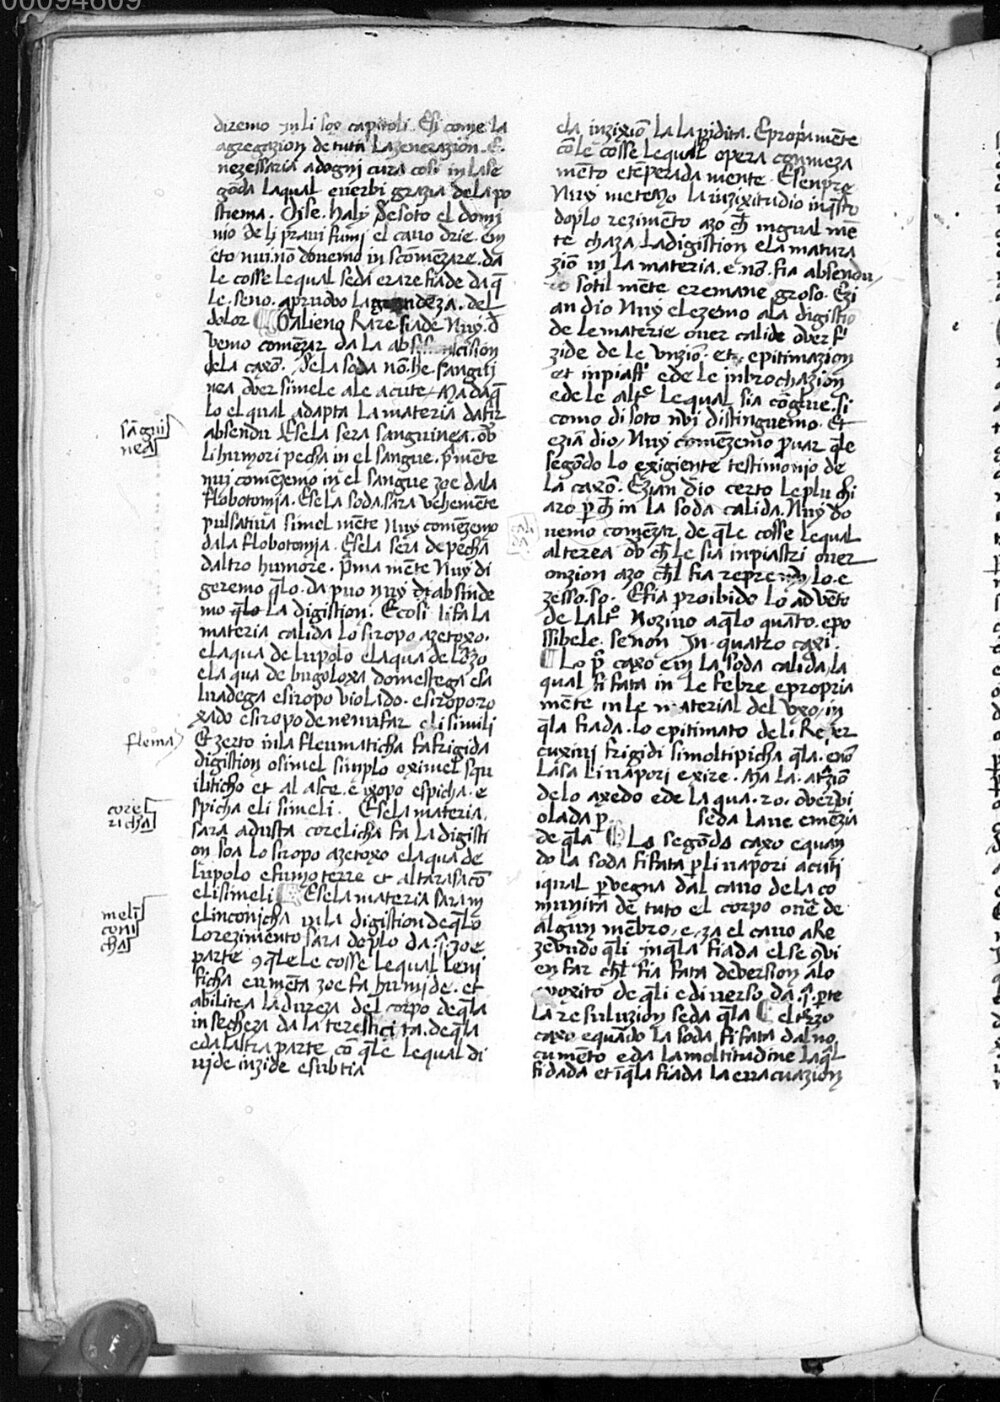 00094609
diremo in li soy capitoli. Esi come la
agregazion de tuta la zenerazion. E.
nezessaria adogni cura cosi in la se
gōda laqual e uerbi grazia dela po
stiema. Dise. haly desoto el domi
nio de li praui fumi el cauo drie. em
eto nui nō douemo in scomēzare. da
le cosse lequal seda erare fiade da q̄
le. seno. apruobo la grandeza. del
dolor Galieno Rare fiade Nuy. d
vemo comēzar da la
dela caxō. Se la soda nō. he. sangui
nea ouer simele ale acute. Ma da q̄
lo el qual adapta la materia dafir
absendu Ese la sera sanguinea. ov̄
li humori pecha in el sangue. p̄mēte
nui comēzemo in el sangue zoe dala
flobotomia. Ese la soda sara vehemēte
pulsatiua simel mēte Nuy comēzemo
dala flobotomia. Ese la sera de pecha
daltro humore. p̄ma mēte Nuy di
geremo q̄lo. da puo nuy di absinde
mo q̄lo La digistion. E cosi li fa la
materia calida lo siropo azetoxo.
elaqua de lupolo elaqua de
ela qua de bugoloxa domestega ela
luadega esiropo violado. esiroporo
xado esiropo de nenufar eli simili
Et zerto in la fleumaticha fa frigida
digistion osimel simplo oximel squ
iliticho et al asce. e ixopo espicha. e
spicha eli simeli. Ese la materia.
sara adusta corelicha fa la digisti
on soa lo siropo azetoxo elaqua de
lupolo efumo terre et altarasacō
eli simeli Ese la materia sara m
elinconicha in la digistion de q̄lo
Lo rezimento sara de plo da. zoe
parte 9 q̄le le cosse lequal leni
ficha eumēta zoe fa humide. et
abilitea la dureza del corpo de q̄la
in secheza da la teresticita. de q̄la
eda lastra parte cō q̄le lequal di
uide inzide esubtia
sāgui
nea
flema
corel
richa
meli
coni
cha
ela inzixiō la lapidita. E propiamēte
cōle cosse lequal opera conueza
mēto etēperada mente. Esenpre
Nuy metemo la inzixitudio in q̄sto
doplo rezimēto azo ch̄ ingual mē
te chaza la digistion ela matura
ziō in la materia. e. nō. fia absendu
sotil mēte eremane groso. Ezi
an dio Nuy elezemo ala digistio
de le materie ouer calide over fr
zide de le vnziō. et. epitimazion
et inpiast̄ ede le inbrochazion
ede le alt̄ lequal sia cōgrue. si
como di soto nui distinguemo. Et
eziā dio, Nuy comēzemo p̄uar q̄le
segōdo lo exigiente testimonio de
la caxō. Ezian dio certo le plu chi
aro p ch̄ in la soda calida. Nuy do
uemo comēzar de q̄le cosse lequal
alterea ov̄ ch̄ le sia inpiastri ouer
onzion azo ch̄l fia represo lo. e
zesso. so. E fia proibido lo advēto
de lalt̄ nozino aq̄lo quāto. e po
ssibele. se non In. quatro caxi.
Lo p̄ caxō e in la soda calida. la
qual fi fata in le febre e propria
mēte in le material del vxo, in
q̄la fiada. lo epitimato de li
cuxini frigidi simoltipicha q̄la. e nō
lasa li uapori exire. Ma la. at̄ziō
delo axedo ede la qua. ro. overbi
olada p. seda la ue emēzia
de q̄la Lo segōdo caxo e quan
do la soda fi fata p li uapori acuti
iqual p uegna dal cauo de la co
munita de tuto el corpo ouē de
algun mēbro, e, za el cauo a Re
zeuudo q̄li in q̄la fiada el se 9ui
en far ch̄l fia fata deversion alo
opoxito de q̄li e diuerso. da. p̄. p̄te
la resuluzion seda q̄la el t̄zo
caxo e quādo la soda fi fata dal no
cumēto eda la moltitudine laq̄l
fi dada et ī q̄la fiada la euacuazion